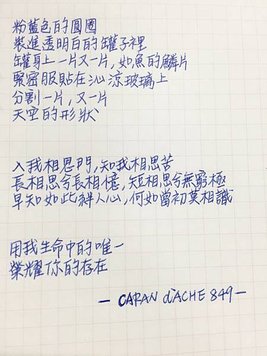 粉藍色的圓圈
裝進透明白的罐子裡
罐身上一片又一片，如魚的鱗片
緊密服貼在沁涼玻璃上
分割一片，又一片
天空的形狀
入我相思門，知我相思苦
長相思兮長相憶，短相思兮無窮極
早知如此絆人心，何如當初莫相識
用我生命中的唯一
榮耀你的存在
— CARAN d'ACHE 849 —